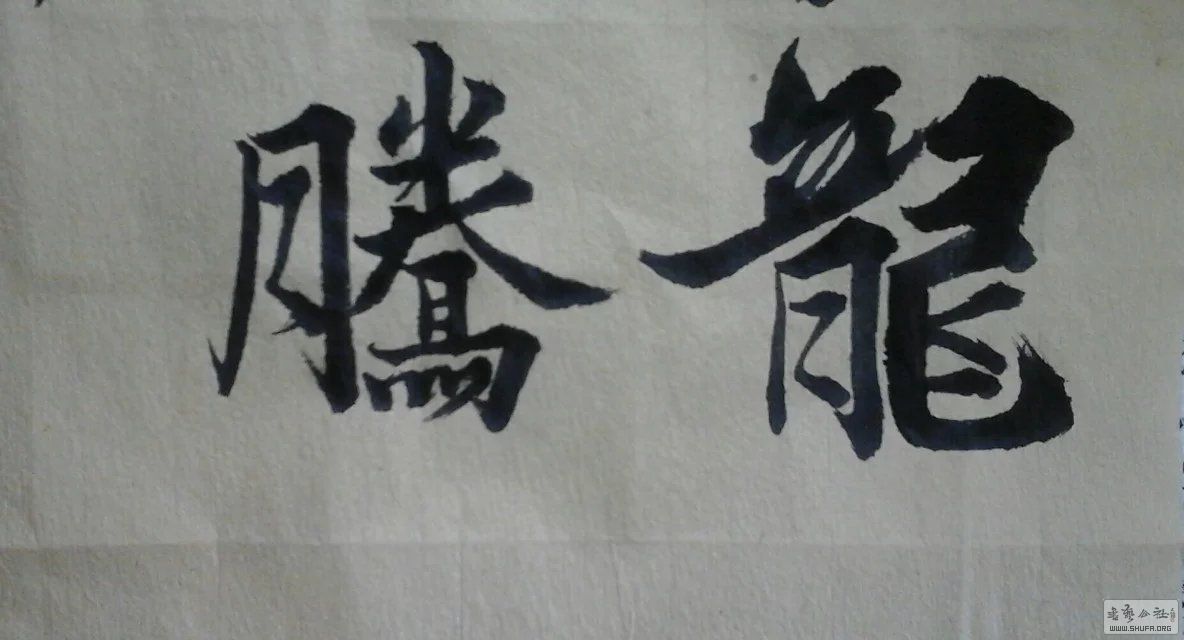 龍騰
書藝公社
WWW.SHUFA.ORG